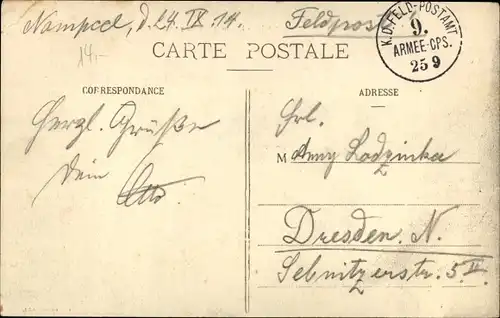 Nampcel, d. 24. IX. 14.
Feldpost
14.-
K.D. FELD-POSTAMT
9.
ARMEE-CPS.
25 9
CARTE POSTALE
CORRESPONDANCE
Herzl. Grüße
Dein Otto.
ADRESSE
Frl.
M
Dresden. N.
Sebnitzerstr. 5 II.